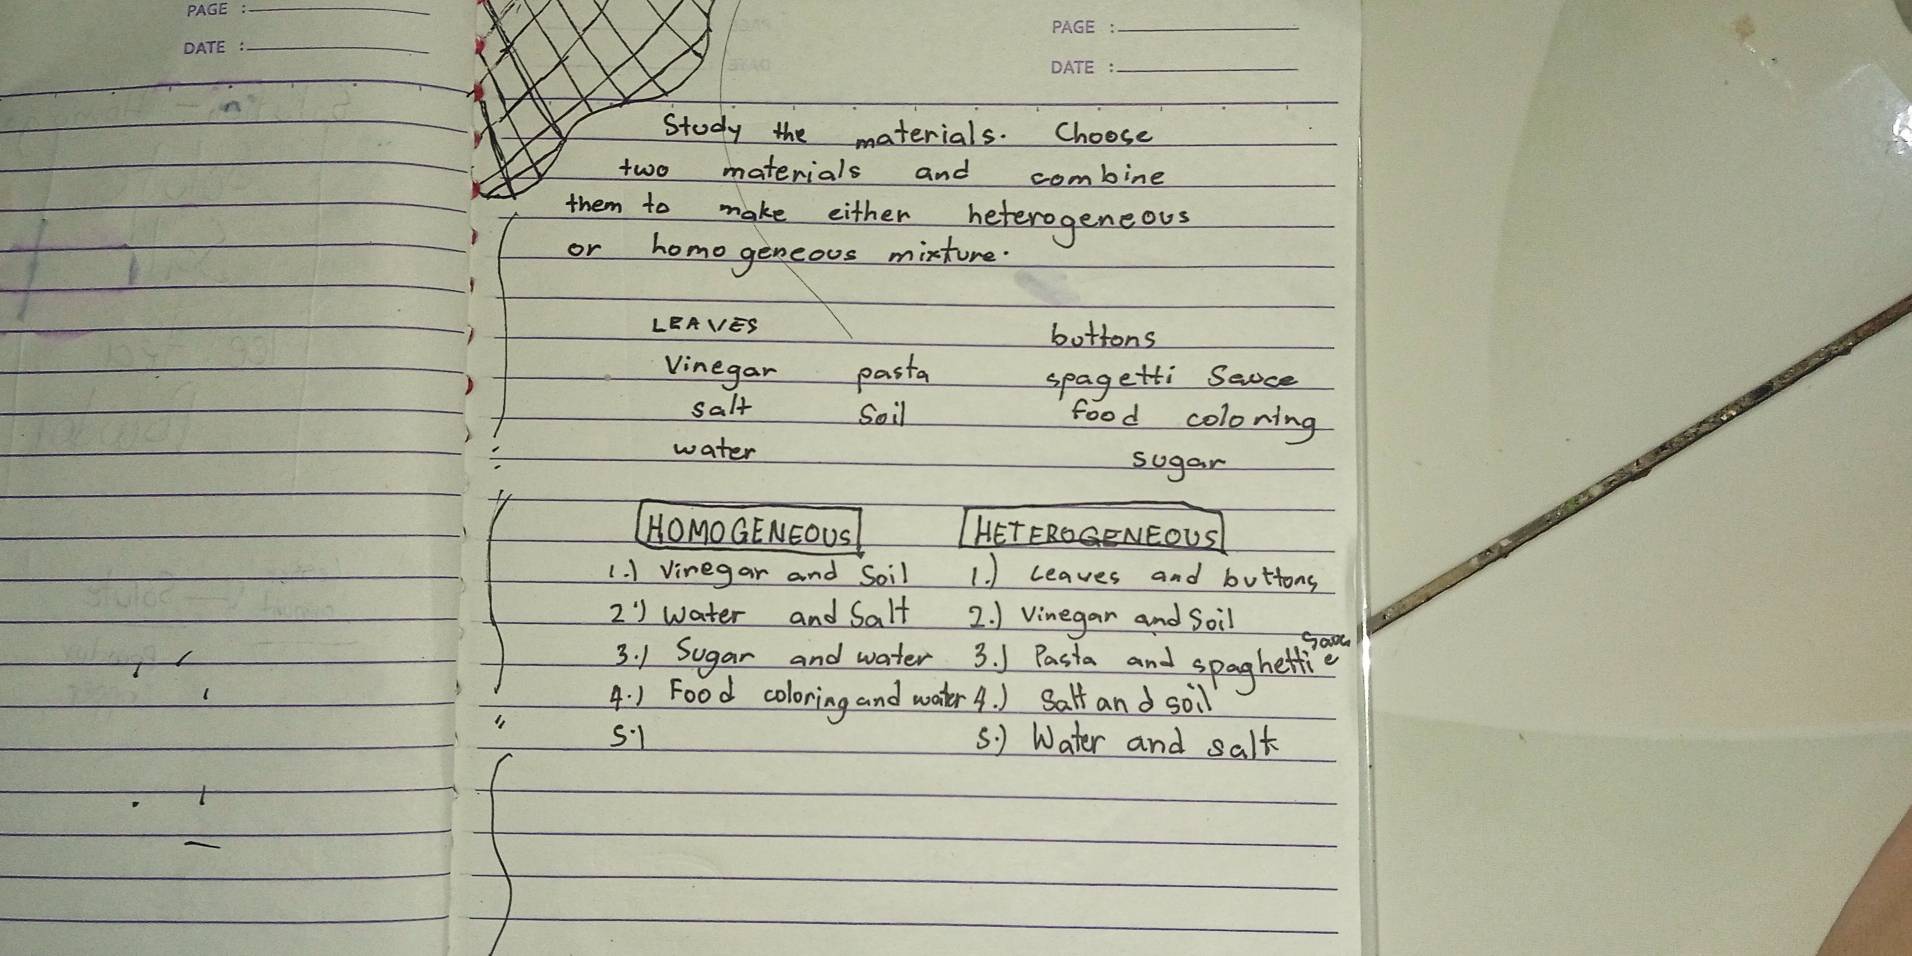 PAGE :
DATE :
PAGE :
DATE :
Study the materials. Choose
two materials and combine
them to make either heterogeneous
or homogeneous mixture.
LEAVES buttons
Vinegar pasta spagetti Sauce
salt Soil food coloring
water sugar
HOMOGENEOUS HETEROGENEOUS
1.) Vinegar and Soil 1.) Leaves and buttons
2.) Water and Salt 2.) Vinegar and Soil
3.) Sugar and water 3.) Pasta and spaghetti sauce
4.) Food coloring and water 4.) Salt and soil
5.) 5.) Water and salt